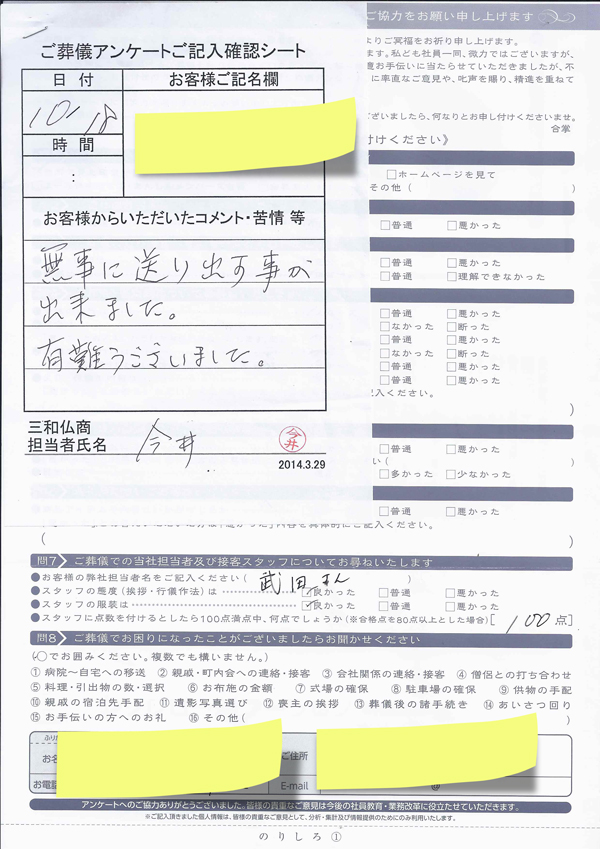 ご葬儀アンケートご記入確認シート
日付
お客様ご記名欄
10/18
時間
:
お客様からいただいたコメント・苦情 等
無事に送り出す事が
出来ました。
有難うございました。
三和仏商
担当者氏名
今井
今井
2014.3.29
ご協力をお願い申し上げます
よりご冥福をお祈り申し上げます。
ます。私ども社員一同、微力ではございますが、
遺お手伝いに当たらせていただきましたが、不
に率直なご意見や、叱声を賜り、精進を重ねて
ございましたら、何なりとお申し付けくださいませ。
合掌
付けください》
□ホームページを見て
その他( )
□普通 □悪かった
□普通 □悪かった
□普通 □理解できなかった
□普通 □悪かった
□なかった □断った
□普通 □悪かった
□なかった □断った
□普通 □悪かった
□普通 □悪かった
記入ください。
)
□普通 □悪かった
い( )
□多かった □少なかった
□普通 □悪かった
内容を具体的にご記入ください。
( )
問7 ご葬儀での当社担当者及び接客スタッフについてお尋ねいたします
●お客様の弊社担当者名をご記入ください( 武田さん )
●スタッフの態度(挨拶・行儀作法)は ☑良かった □普通 □悪かった
●スタッフの服装は ☑良かった □普通 □悪かった
●スタッフに点数を付けるとしたら100点満点中、何点でしょうか(※合格点を80点以上とした場合)[ 100 点]
問8 ご葬儀でお困りになったことがございましたらお聞かせください
(○でお囲みください。複数でも構いません。)
①病院~自宅への移送 ②親戚・町内会への連絡・接客 ③会社関係の連絡・接客 ④僧侶との打ち合わせ
⑤料理・引出物の数・選択 ⑥お布施の金額 ⑦式場の確保 ⑧駐車場の確保 ⑨供物の手配
⑩親戚の宿泊先手配 ⑪遺影写真選び ⑫喪主の挨拶 ⑬葬儀後の諸手続き ⑭あいさつ回り
⑮お手伝いの方へのお礼 ⑯その他( )
ふり
お名
ご住所
お電話
E-mail @
アンケートへのご協力ありがとうございました。皆様の貴重なご意見は今後の社員教育・業務改革に役立たせていただきます。
※ご記入頂きました個人情報は、皆様の貴重なご意見として、分析・集計及び情報提供のためにのみ利用いたします。
のりしろ①